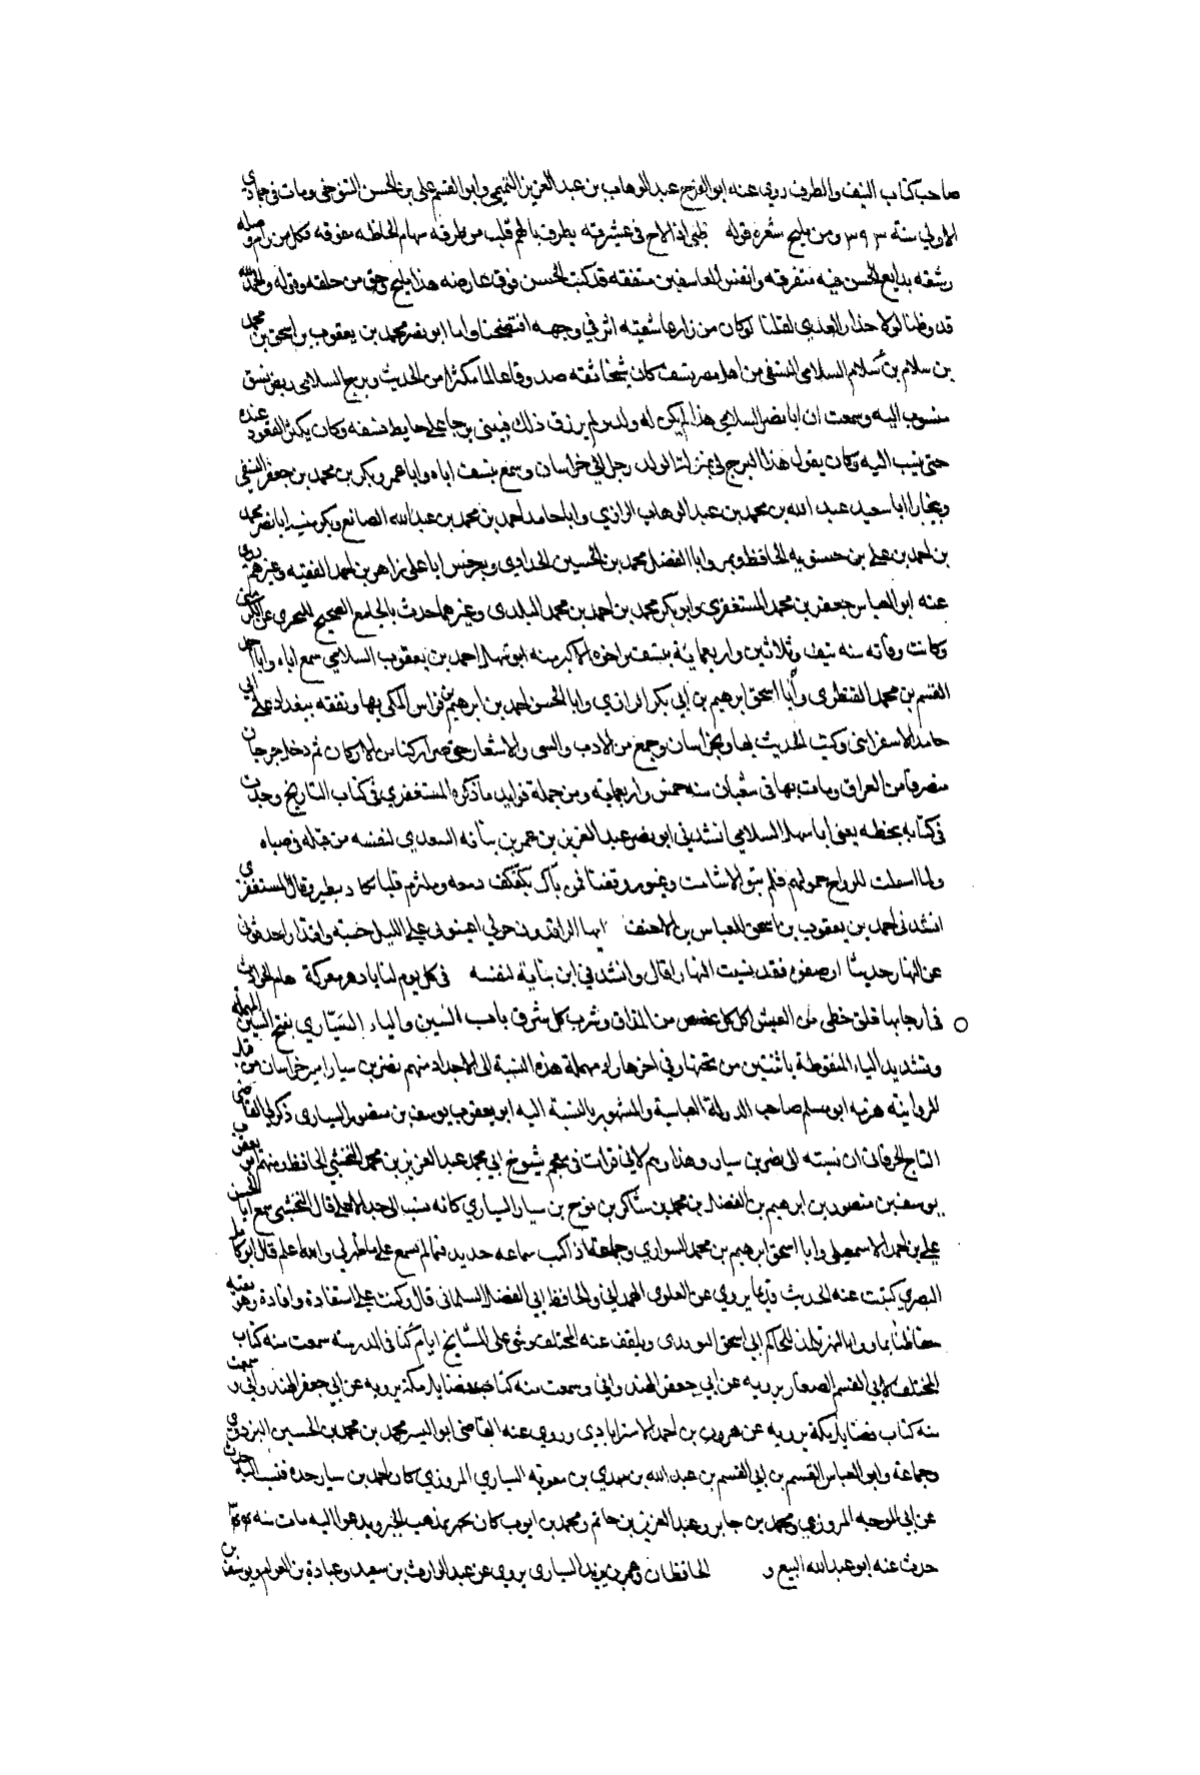 صاحب كتاب النتف والطرف روى عنه ابو الفرج عبد الوهاب بن عبد العزيز التميمي وابو القسم علي بن الحسن التنوخي ومات في جمادي
الاولي سنة ٣٩٣ ومن مليح شعره قوله ظبي اذا لاح في عشيرته يطرف بالهم قلب من طرفه سهام الحاظه مفوقه فكل من رام وصله
رشقه بدايع الحسن فيه متفرقه وانفس العاسفين متفقه قد كتب الحسن فوق عارضه هذا مليح وحق من خلقه وقوله والحمد لله
قد وظنا لولا حذار العدى لقلنا لو كان من زارها شفته اثر في وجهه افتضحنا واما ابو نصر محمد بن يعقوب بن اسحق بن محمد
بن سلام بن سلام السلامي النسفي من اهل نسف كان شيخا ثقه صدوقا عالما مكثرا من الحديث وبرج السلامي ربض نسف
منسوب اليه وسمعت ان ابا نصر السلامي هذا لم يكن له ولد ولم يرزق ذلك فبنى برجا على حايط نسفه وكان يكثر القعود عنده
حتى نسب اليه وكان يقول هذا البرج لي بمنزلة الولد رحل الي خراسان وسمع بنسف اباه وابا عمرو بكر بن محمد بن جعفر النسفي
وببخارا ابا سعيد عبد الله بن محمد بن عبد الوهاب الرازي وابا حامد احمد بن محمد بن عبد الله الصانع وبكرمينيه ابا نصر محمد
بن احمد بن علي بن حسنويه الحافظ وبمرو ابا الفضل محمد بن الحسين الحدادي وبسرخس ابا علي زاهر بن احمد الفقيه وغيرهم روى
عنه ابو العباس جعفر بن محمد المستغفري وابو بكر محمد بن احمد بن محمد البلدى وغيرهما حدث بالجامع الصحيح للبحيرى عن الكرميني
وكانت وفاته سنه نيف وثلاثين واربعماية بنسف واخوه الاكبر منه ابو سهل احمد بن يعقوب السلامي سمع اباه وابا احمد
القسم بن محمد القنطرى وابا اسحق ابرهيم بن ابي بكر الرازي وابا الحسن احمد بن ابرهيم بن فراس المكي بها وتفقه ببغداد على ابي
حامد الاسفراينى وكتب الحديث بها وبخراسان وجمع من الادب والسى والاشعار حتى صار ركنا من الاركان ثم دخل جرجان
منصرفا من العراق ومات بها في شعبان سنه خمس واربعمايه ومن جملة فوايد ما ذكره المستغفري في كتاب التاريخ وجدت
في كتابه بخطه يعنى ابا سهل السلامي انشدني ابو نصر عبد العزيز بن عمر بن نباته السعدي لنفسه من قاله في صباه
ولما استقلت للرواح حمولهم فلم يبق الا شامت وغيور وقفنا فمن باك يكفكف دمعه وملتزم قلبا كاد يطير وقال المستغفري
انشدني احمد بن يعقوب بن اسحق للعباس بن الاحنف ايها الراقدون حولي اعينوني على الليل حسبة وايتجارا حدثوني
عن النهار حديثا او صفوه فقد نسيت النهارا قال وانشدني ابن نباتة لنفسه في كل يوم لنا يا دهر معركة هام الحوادث
في ارجايها فلق حظي من العيش اكل كله غصص من المذاق وشرب كله شرق باب السين والياء السيّاري بفتح السين المهملة
وتشديد الياء المنقوطة باثنتين من تحتها وفي اخرها راء مهملة هذه النسبة الى الاجداد منهم نصر بن سيار امير خراسان من قبل
المروانيه هزمه ابو مسلم صاحب الدولة العباسية والمشهور بالنسبة اليه ابو يعقوب يوسف بن منصور السيارى ذكر لي القاضي
التاج الخرقاني ان نسبته الى نصر بن سيار وهذا وهم لاني قرات في معجم شيوخ ابي محمد عبد العزيز بن محمد النخشبي الحافظ ومنهم ابو يعقوب
يوسف بن منصور بن ابرهيم بن الفضل بن محمد بن شاكر بن نوح بن سيار السياري كانه نسب الى جده الاعلى قال النخشبي سمع ابا الحسن
علي بن احمد الاسمعيلي وابا اسحق ابرهيم بن محمد السواري وجماعة اذا كتب سماعه حديد فما لم يسمع على ما ظهر لي والله اعلم قال ابو كامل
البصري كتبت عنه الحديث فيما يروي عن العلوى الهمداني والحافظ ابي الفضل السلماني قال وكنت على استفادة وافادة وهو
حفاظنا بما وراء النهر للحاكم ابي اسحق النوردى ويلقف عنه المختلف وشى على المشايخ ايام كنا في المدرسة سمعت منه كتاب
المختلف لابي القسم الصفار يرويه عن ابي جعفر الهندواني وسمعت منه كتاب فضايل مكة يرويه عن ابي جعفر الهندواني
منه كتاب فضايل مكة يرويه عن هرون بن احمد الاستراباذي وروى عنه القاضي ابو اليسر محمد بن محمد بن الحسين البزدوى
وجماعة وابو العباس القسم بن ابي القسم بن عبد الله بن مهدي بن معويه السياري المروزي كان احمد بن سيار جده فنسب اليه حدث
عن ابي الموجه المروزي ومحمد بن جابر وعبد العزيز بن حاتم ومحمد بن ايوب كان بمذهب الجبر ويدعوا اليه مات سنه ٣٤٤
حدث عنه ابو عبد الله البيع و الحافظان وعمر بن يزيد السيارى يروي عن عبد الوارث بن سعيد وعبادة بن العوام ويوسف بن